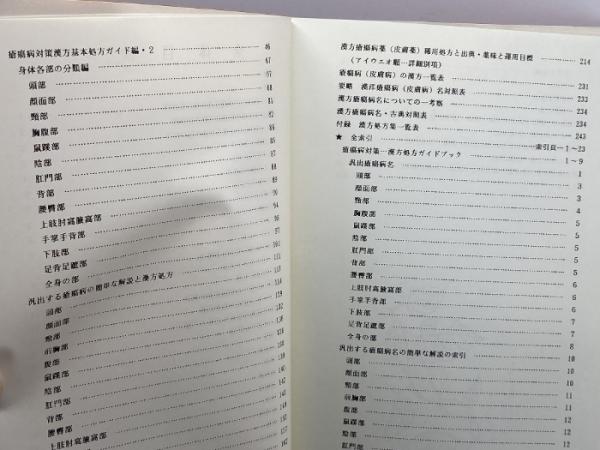 瘡瘍病対策漢方基本処方ガイド編・2 46
身体各部の分類編 67
頭部
顔面部
頸部
胸腹部
鼠蹊部
陰部
肛門部
背部
腰臀部
上肢肘窩腋窩部
手掌手背部
下肢部
足背足蹠部
全身の部
汎出する瘡瘍病の簡単な解説と漢方処方
頭部
顔面部
頸部
前胸部
腹部
鼠蹊部
陰部
肛門部
背部
腰臀部
上肢肘窩腋窩部
漢方瘡瘍病薬（皮膚薬）稀用処方と出典・薬味と運用目標 214
（アイウエオ順…詳細別項）
瘡瘍病（皮膚病）の漢方一覧表 231
要略 漢洋瘡瘍病（皮膚病）名対照表 233
漢方瘡瘍病名についての一考察 234
漢方瘡瘍病名・古典対照表 234
付録 漢方処方集一覧表 243
★ 全索引 索引頁－1～23
瘡瘍病対策－漢方処方ガイドブック 1～9
汎出瘡瘍病名 1
頭部 3
顔面部 3
頸部 4
胸腹部 4
鼠蹊部 5
陰部 5
肛門部 5
背部 5
腰臀部 6
上肢肘窩腋窩部 6
手掌手背部 6
下肢部 7
足背足蹠部 7
全身の部 8
汎出する瘡瘍病名の簡単な解説の索引 10
頭部 10
顔面部 10
頸部 11
前胸部 11
腹部 12
鼠蹊部 12
陰部 12
肛門部